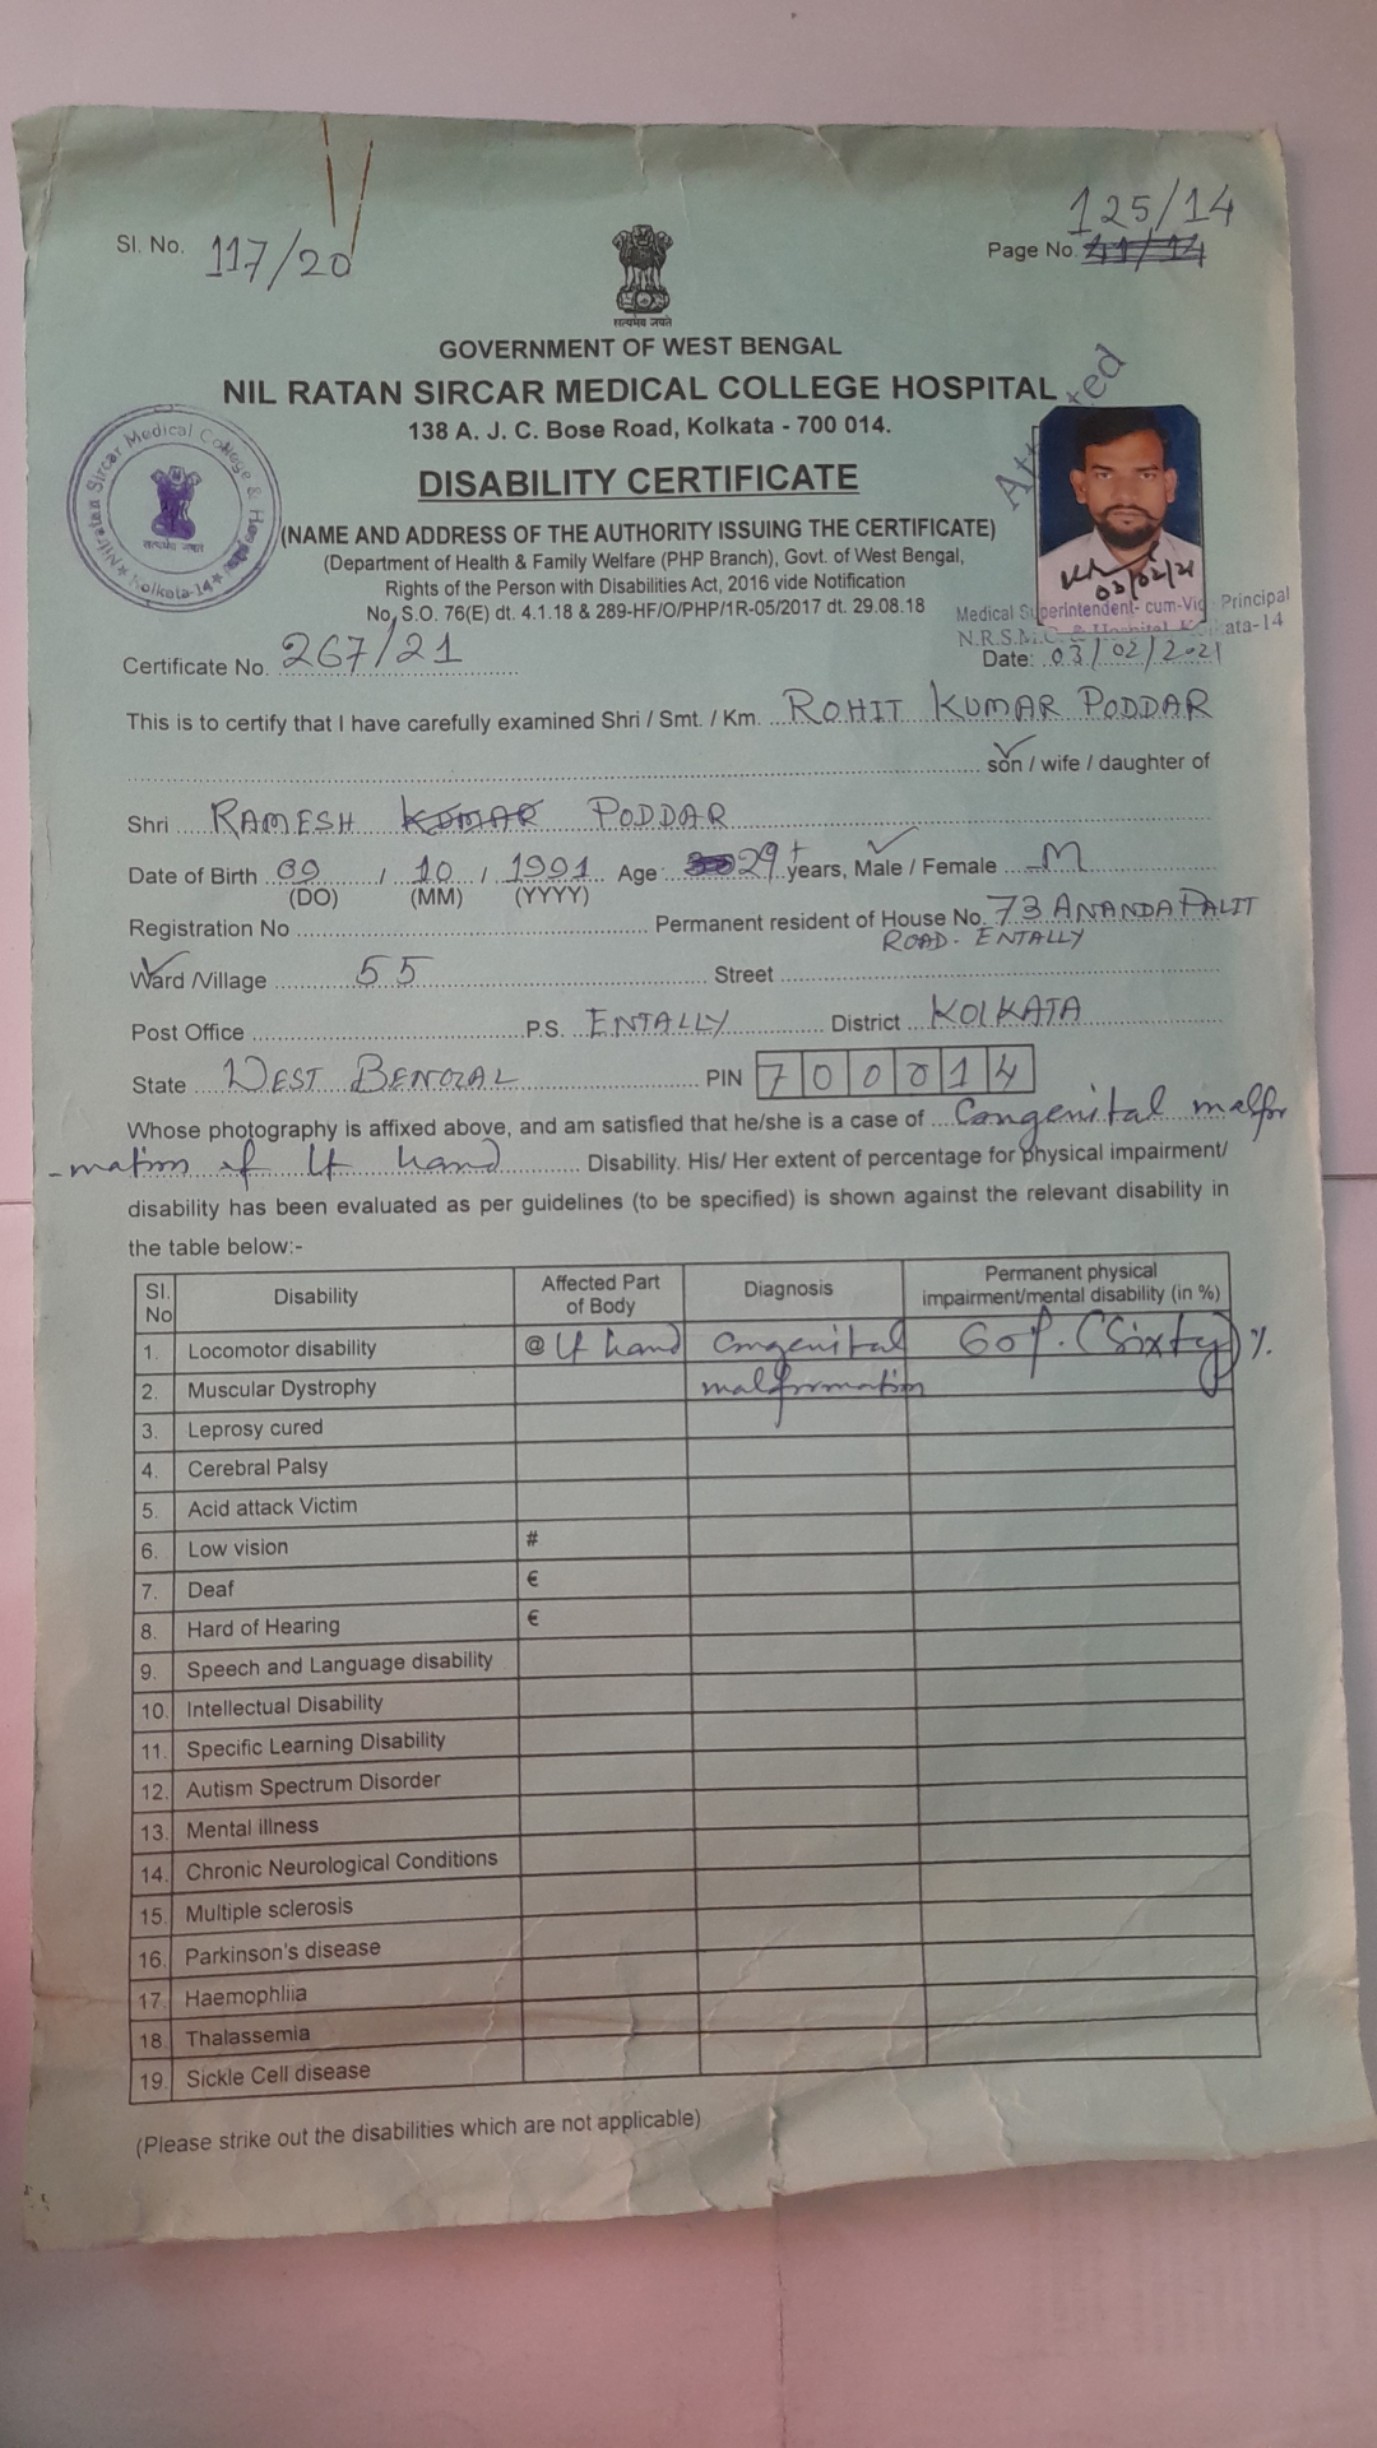 Sl. No. 117/20
125/14
Page No.
सत्यमेव जयते
GOVERNMENT OF WEST BENGAL
NIL RATAN SIRCAR MEDICAL COLLEGE HOSPITAL
138 A. J. C. Bose Road, Kolkata - 700 014.
DISABILITY CERTIFICATE
Nilratan Sircar Medical College & Hospital
★ Kolkata-14 ★
सत्यमेव जयते
Attested
(NAME AND ADDRESS OF THE AUTHORITY ISSUING THE CERTIFICATE)
(Department of Health & Family Welfare (PHP Branch), Govt. of West Bengal,
Rights of the Person with Disabilities Act, 2016 vide Notification
No, S.O. 76(E) dt. 4.1.18 & 289-HF/O/PHP/1R-05/2017 dt. 29.08.18
03/02/21
Medical Superintendent- cum-Vice Principal
N.R.S.M.C. & Hospital, Kolkata-14
Certificate No. 267/21
Date: 03/02/2021
This is to certify that I have carefully examined Shri / Smt. / Km. ROHIT KUMAR PODDAR
son / wife / daughter of
Shri RAMESH KUMAR PODDAR
Date of Birth 09 / 10 / 1991 Age: 29+ years, Male / Female M
(DO) (MM) (YYYY)
Registration No Permanent resident of House No. 73 ANANDA PALIT
ROAD - ENTALLY
Ward /Village 55 Street
Post Office P.S. ENTALLY District KOLKATA
State WEST BENGAL PIN 700014
Whose photography is affixed above, and am satisfied that he/she is a case of Congenital malfor
-mation of Lt hand Disability. His/ Her extent of percentage for physical impairment/
disability has been evaluated as per guidelines (to be specified) is shown against the relevant disability in
the table below:-
Sl. No Disability Affected Part of Body Diagnosis Permanent physical impairment/mental disability (in %)
1. Locomotor disability @ Lt hand Congenital malformation 60%. (Sixty) %.
2. Muscular Dystrophy
3. Leprosy cured
4. Cerebral Palsy
5. Acid attack Victim
6. Low vision #
7. Deaf €
8. Hard of Hearing €
9. Speech and Language disability
10. Intellectual Disability
11. Specific Learning Disability
12. Autism Spectrum Disorder
13. Mental illness
14. Chronic Neurological Conditions
15. Multiple sclerosis
16. Parkinson's disease
17. Haemophliia
18. Thalassemia
19. Sickle Cell disease
(Please strike out the disabilities which are not applicable)